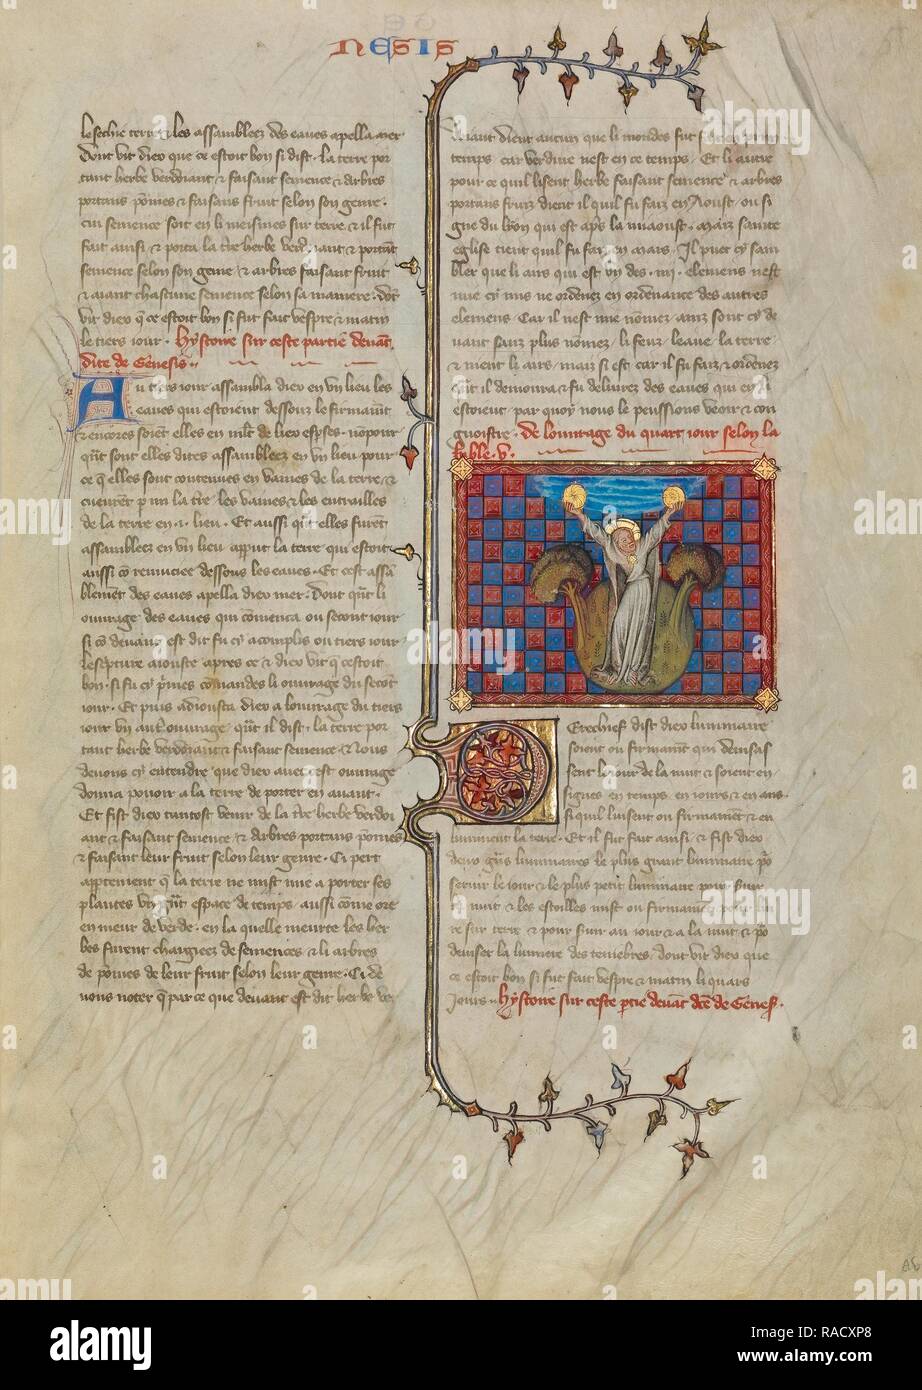 NESIS
le seche terre & les assamblees des eaues apella mer
Dont vit dieu que ce estoit bon si dist · la terre por
tant herbe verdoiant & faisant semence & arbres
portans pomes & faisans fruit selon son genre ·
cui semence soit en li meismes sur terre & il fut
fait ainsi & porta la tre herbe verdoiant & portant
semence selon son genre & arbres faisant fruit
& aiant chascune semence selon sa maniere · dont
vit dieu q ce estoit bon si fut fait vespre & matin
le tiers iour · hystoire sur ceste partie deuant
dite de Genesis ·
Au tiers iour assambla dieu en vn lieu les
eaues qui estoient dessouz le firmament
& encores soient elles en mlt de lieux
quant sont elles dites assamblees en vn lieu pour
ce q elles sont contenues en vaines de la terre &
cueurent p mi la tre les vaines & les entrailles
de la terre en ·i· lieu · Et aussi q elles furent
assamblees en vn lieu apparut la terre qui estoit
aussi dessous les eaues · Et cest assam
blement des eaues apella dieu mer · Dont li
ouurage des eaues qui comenca ou second iour
si deuant est dit fu cy acomplis ou tiers iour
lescripture aiouste apres ce & dieu vit q cestoit
bon · si fu cy comandes li ouurage du secont
iour · Et puis adiousta dieu a louurage du tiers
iour vn autre ouurage quant il dist · la terre por
tant herbe verdoiant & faisant semence & Nous
deuons cy entendre que dieu auec cest ouurage
donna pouoir a la terre de porter en auant ·
Et fist dieu tantost venir de la tre herbe verdoi
ant & faisant semence & arbres portans pomes
& faisant leur fruit selon leur genre · Ci pert
q la terre ne mist mie a porter ses
plantes vn grant espace de temps aussi come ore
en la quelle les her
bes furent chargiees de semences & li arbres
de pomes de leur fruit selon leur genre · Ci de
uons noter q par ce que deuant est dit herbe ver
diant dient aucun que li mondes fut fais en prin
temps car verdure nest en ce temps · Et li autre
pour ce quil lisent herbe faisant semence & arbres
portans fruiz dient il quil fu faiz en Aoust ou si
gne du lyon qui est aps la miaoust · Maiz sainte
eglise tient quil fu faiz en mars · Il puet cy sam
bler que li airs qui est vn des ·iiii· elemens nest
mie cy mis ne ordenez en ordenance des autres
elemens · Car il nest mie nomez ainz sont cy de
uant sanz plus nomez · li feuz · leaue · la terre ·
& nient li airs · mais si est car il fu faiz & ordenez
quant il demoura & fu deliurez des eaues qui en li
estoient par quoy nous le peussions veoir & con
gnoistre · De louurage du quart iour selon la
bible · V ·
Derechief dist dieu luminaire
soient ou firmament qui deuisas
sent le iour de la nuit & soient en
signes en temps en iours & en ans ·
si quil luisent ou firmament & en
luminent la terre · Et il fut fait ainsi & fist dieu
deux grans luminaires le plus grant luminaire por
seruir le iour & le plus petit luminaire pour seruir
la nuit & les estoilles mist ou firmament pour lui
re sur terre & pour seruir au iour & a la nuit & por
deuiser la lumiere des tenebres dont vit dieu que
ce estoit bon si fut fait vespre & matin li quars
iours · hystoire sur ceste ptie deuant dite de Genes ·
alamy
Image ID: RACXP8
www.alamy.com